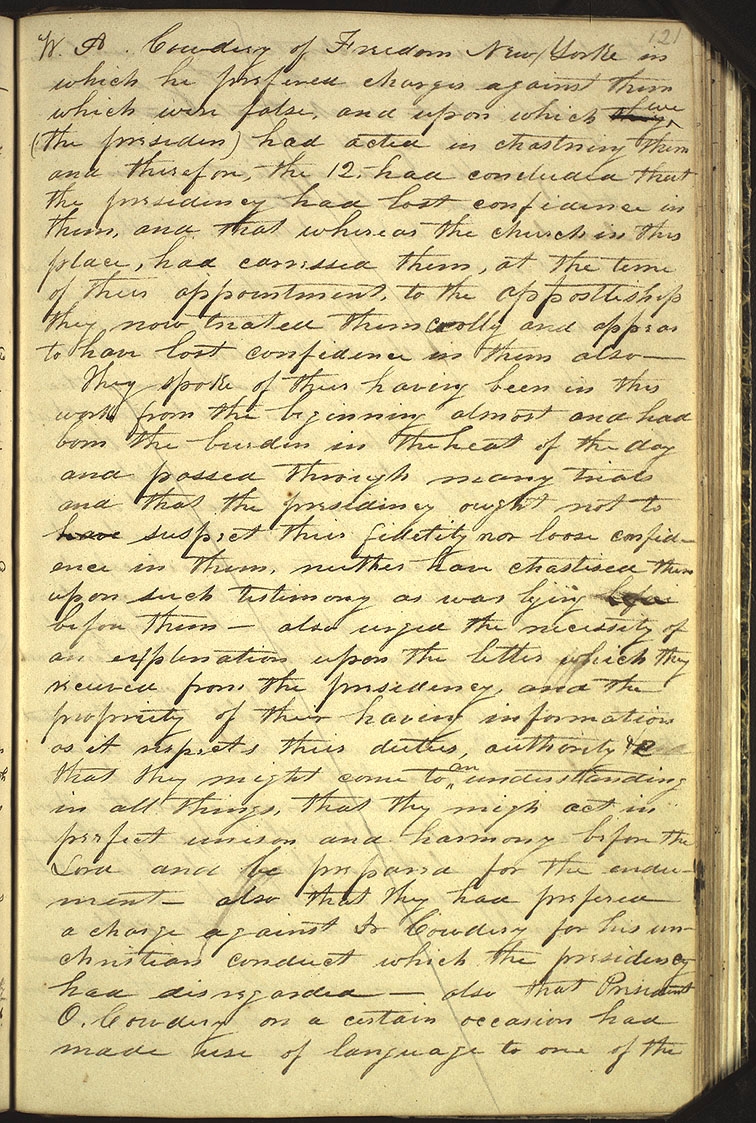 121
W. A. Cowdery of Freedom New Yorke in
which he prefered charges against them
which were false, and upon which they we
(the presiden) had acted in chastning them
and therefore, the 12. had concluded that
the presidency had lost confidence in
them, and that whereas the church in this
place, had carressed them, at the time
of their appointment, to the appostleship
they now treated them coolly and appear
to have lost confidence in them also—
They spoke of their having been in this
work from the beginning almost and had
born the burden in the heat of the day
and passed through many trials
and that the presidency ought not to
have suspect their fidelity nor loose confid-
ence in them, neither have chastised them
upon such testimony as was lying before
before them— also urged the necessity of
an explanation upon the letter which they
received from the presidency, and the
propriety of their having information
as it respects their duties, authority &c
that they might come to an understanding
in all things, that they migh act in
perfect unison and harmony before the
Lord and be prepared for the endu-
ment— also that they had prefered
a charge against Dr Cowdery for his un-
christian conduct which the presidency
had disregarded— also that President
O. Cowdery on a certain occasion had
made use of language to one of the